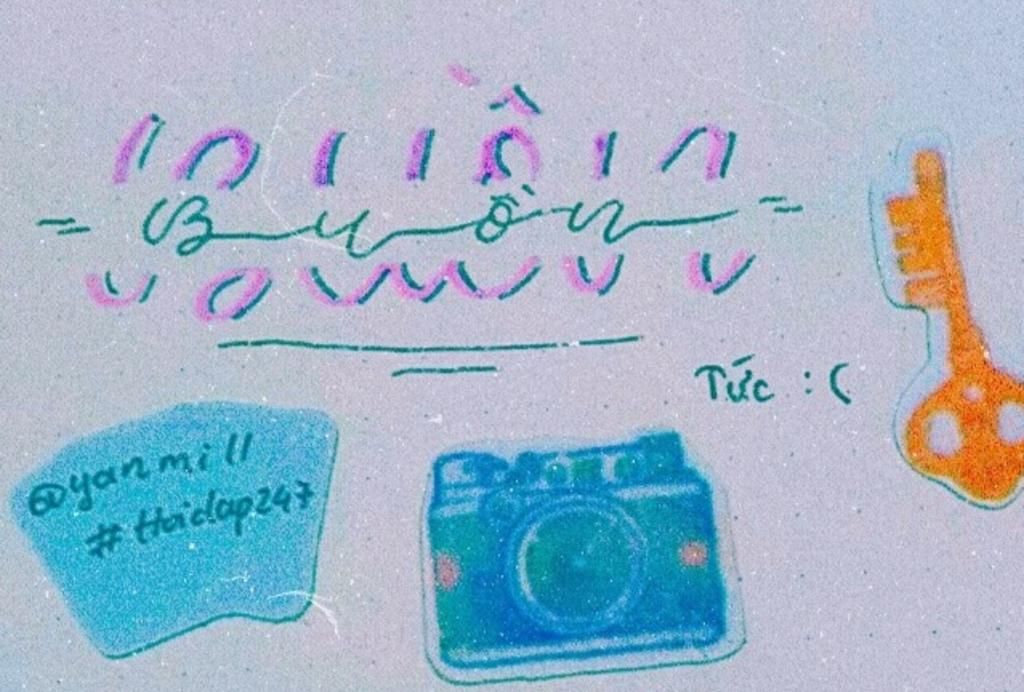 = Buồn =
Tức :(
@yanmill
#Hoidap247